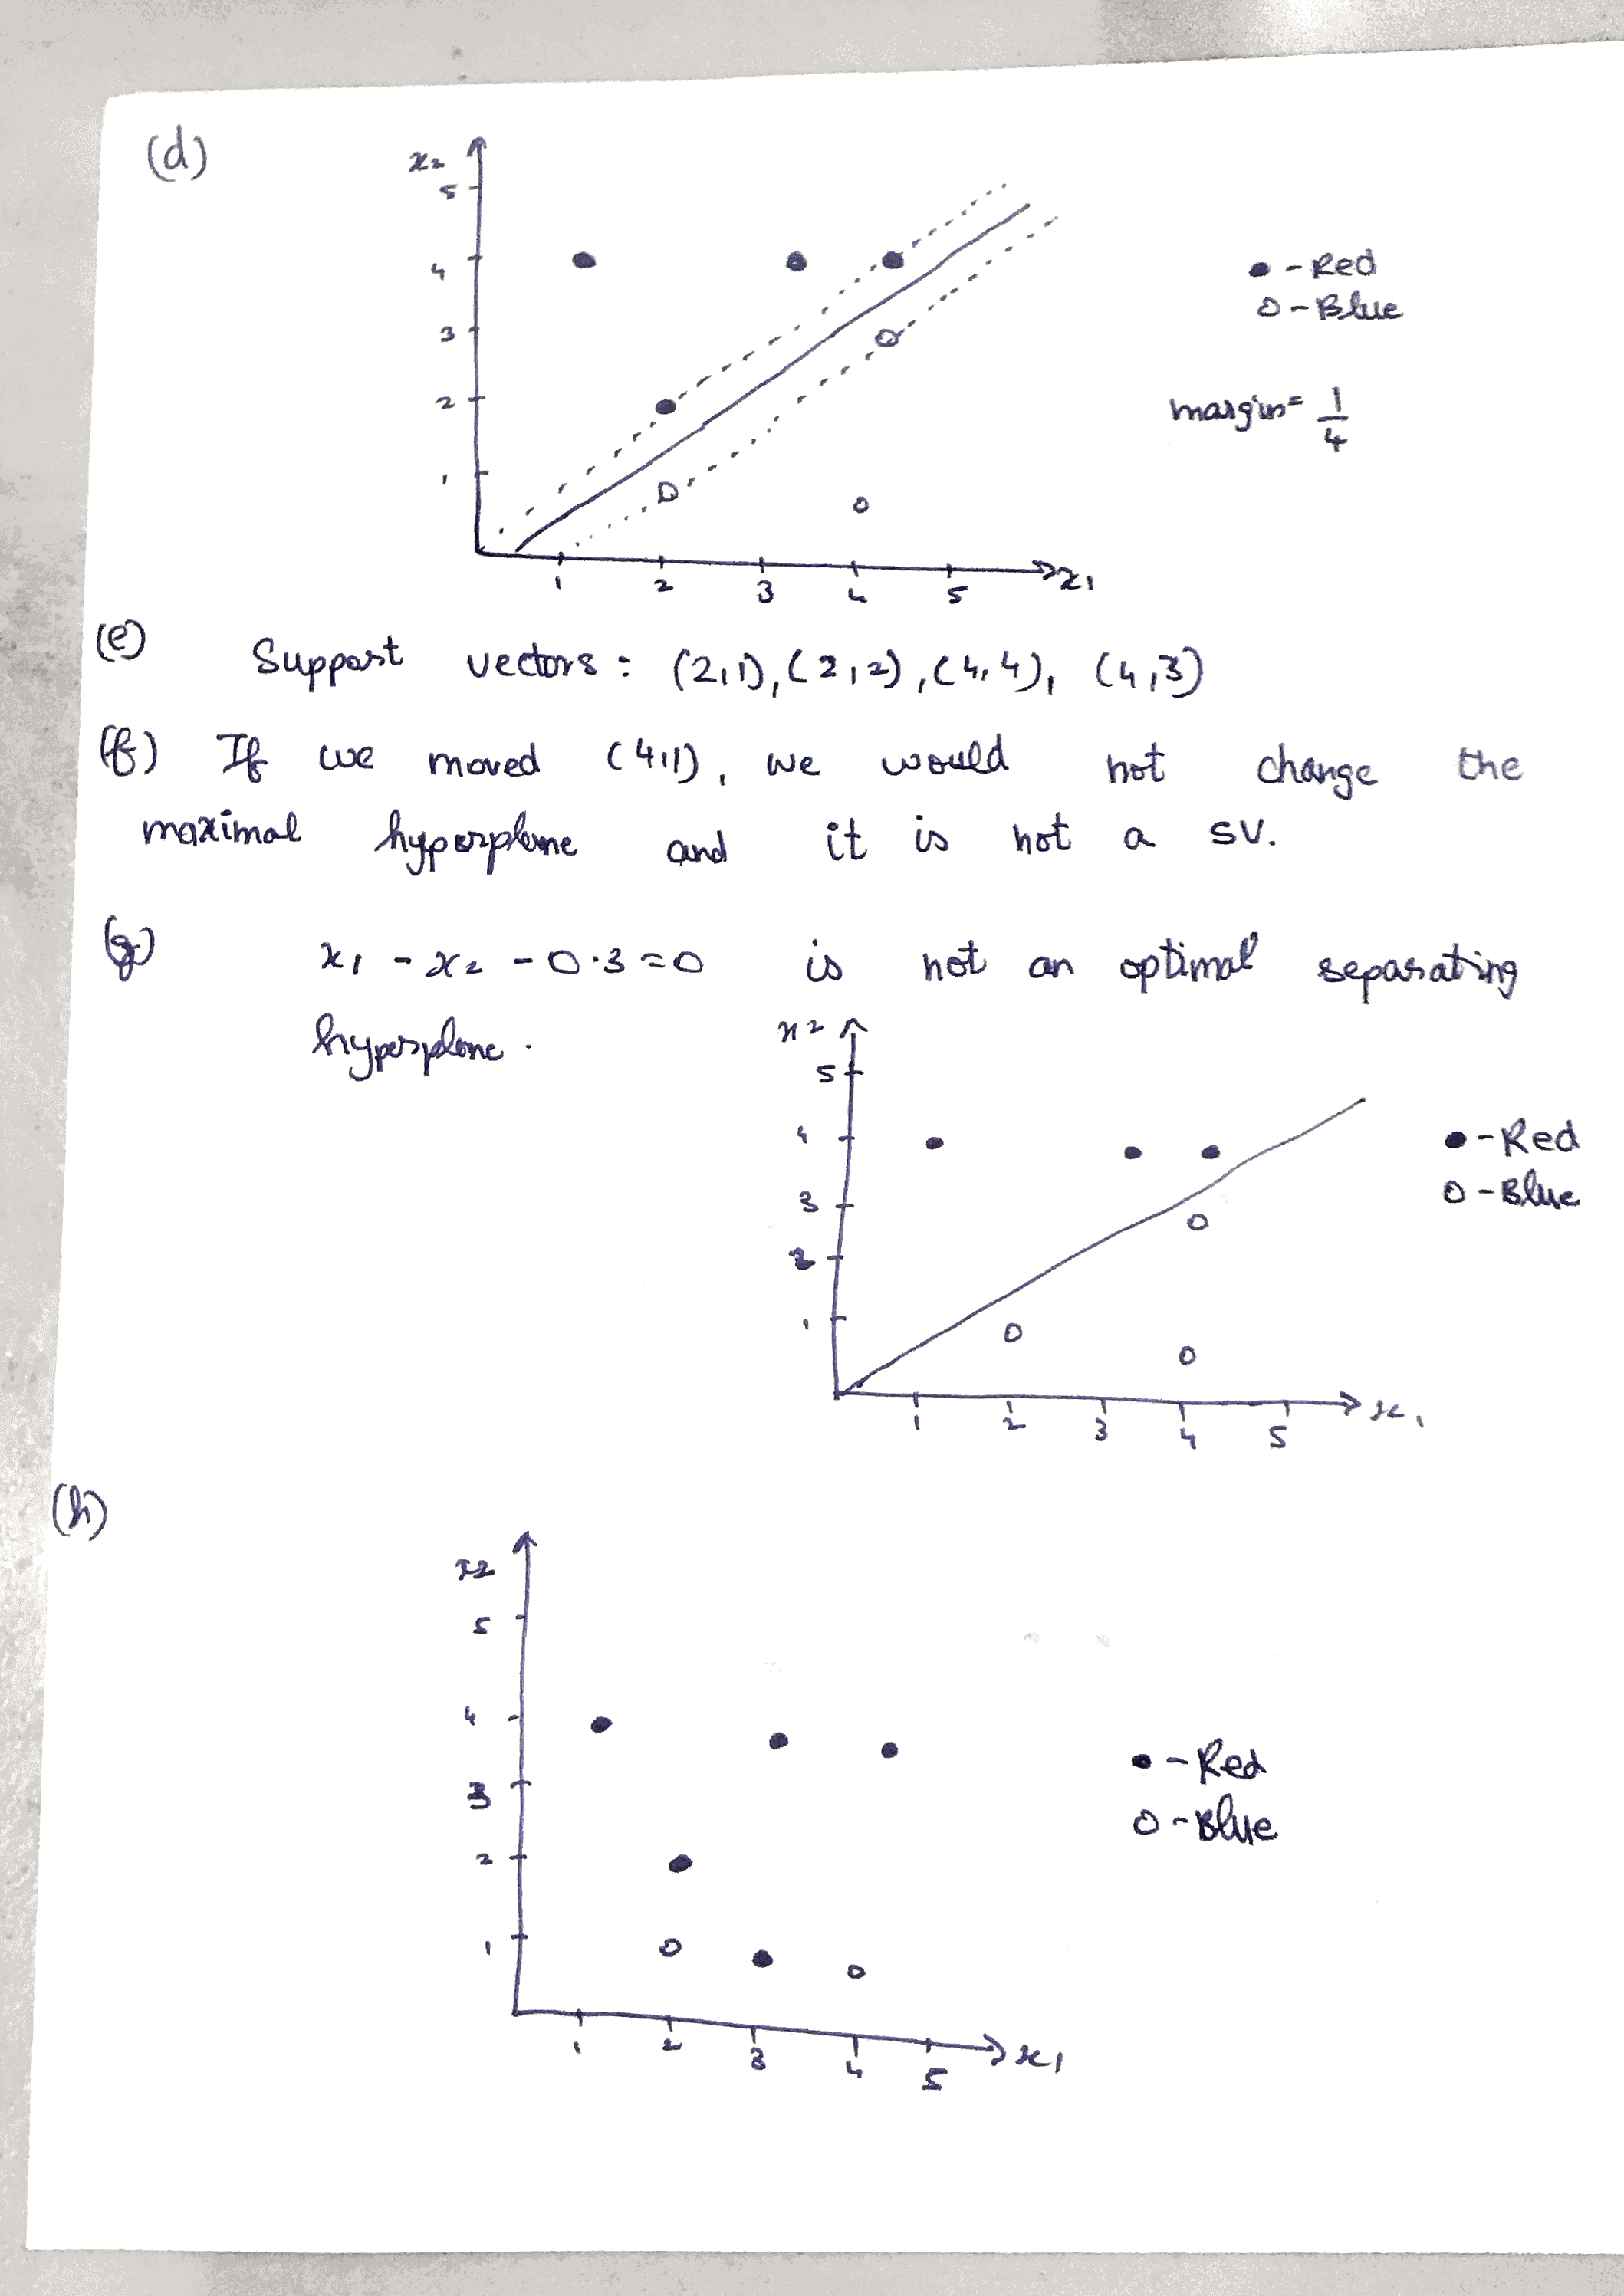 (d)
x2
5
4
3
2
1
1 2 3 4 5 x1
● - Red
○ - Blue
margin = 1/4
(e) Support vectors : (2,1), (2,2), (4,4), (4,3)
(f) If we moved (4,1), we would not change the
maximal hyperplane and it is not a SV.
(g) x1 - x2 - 0.3 = 0 is not an optimal separating
hyperplane.
x2
5
4
3
2
1
1 2 3 4 5 x1
● - Red
○ - Blue
(h)
x2
5
4
3
2
1
1 2 3 4 5 x1
● - Red
○ - Blue